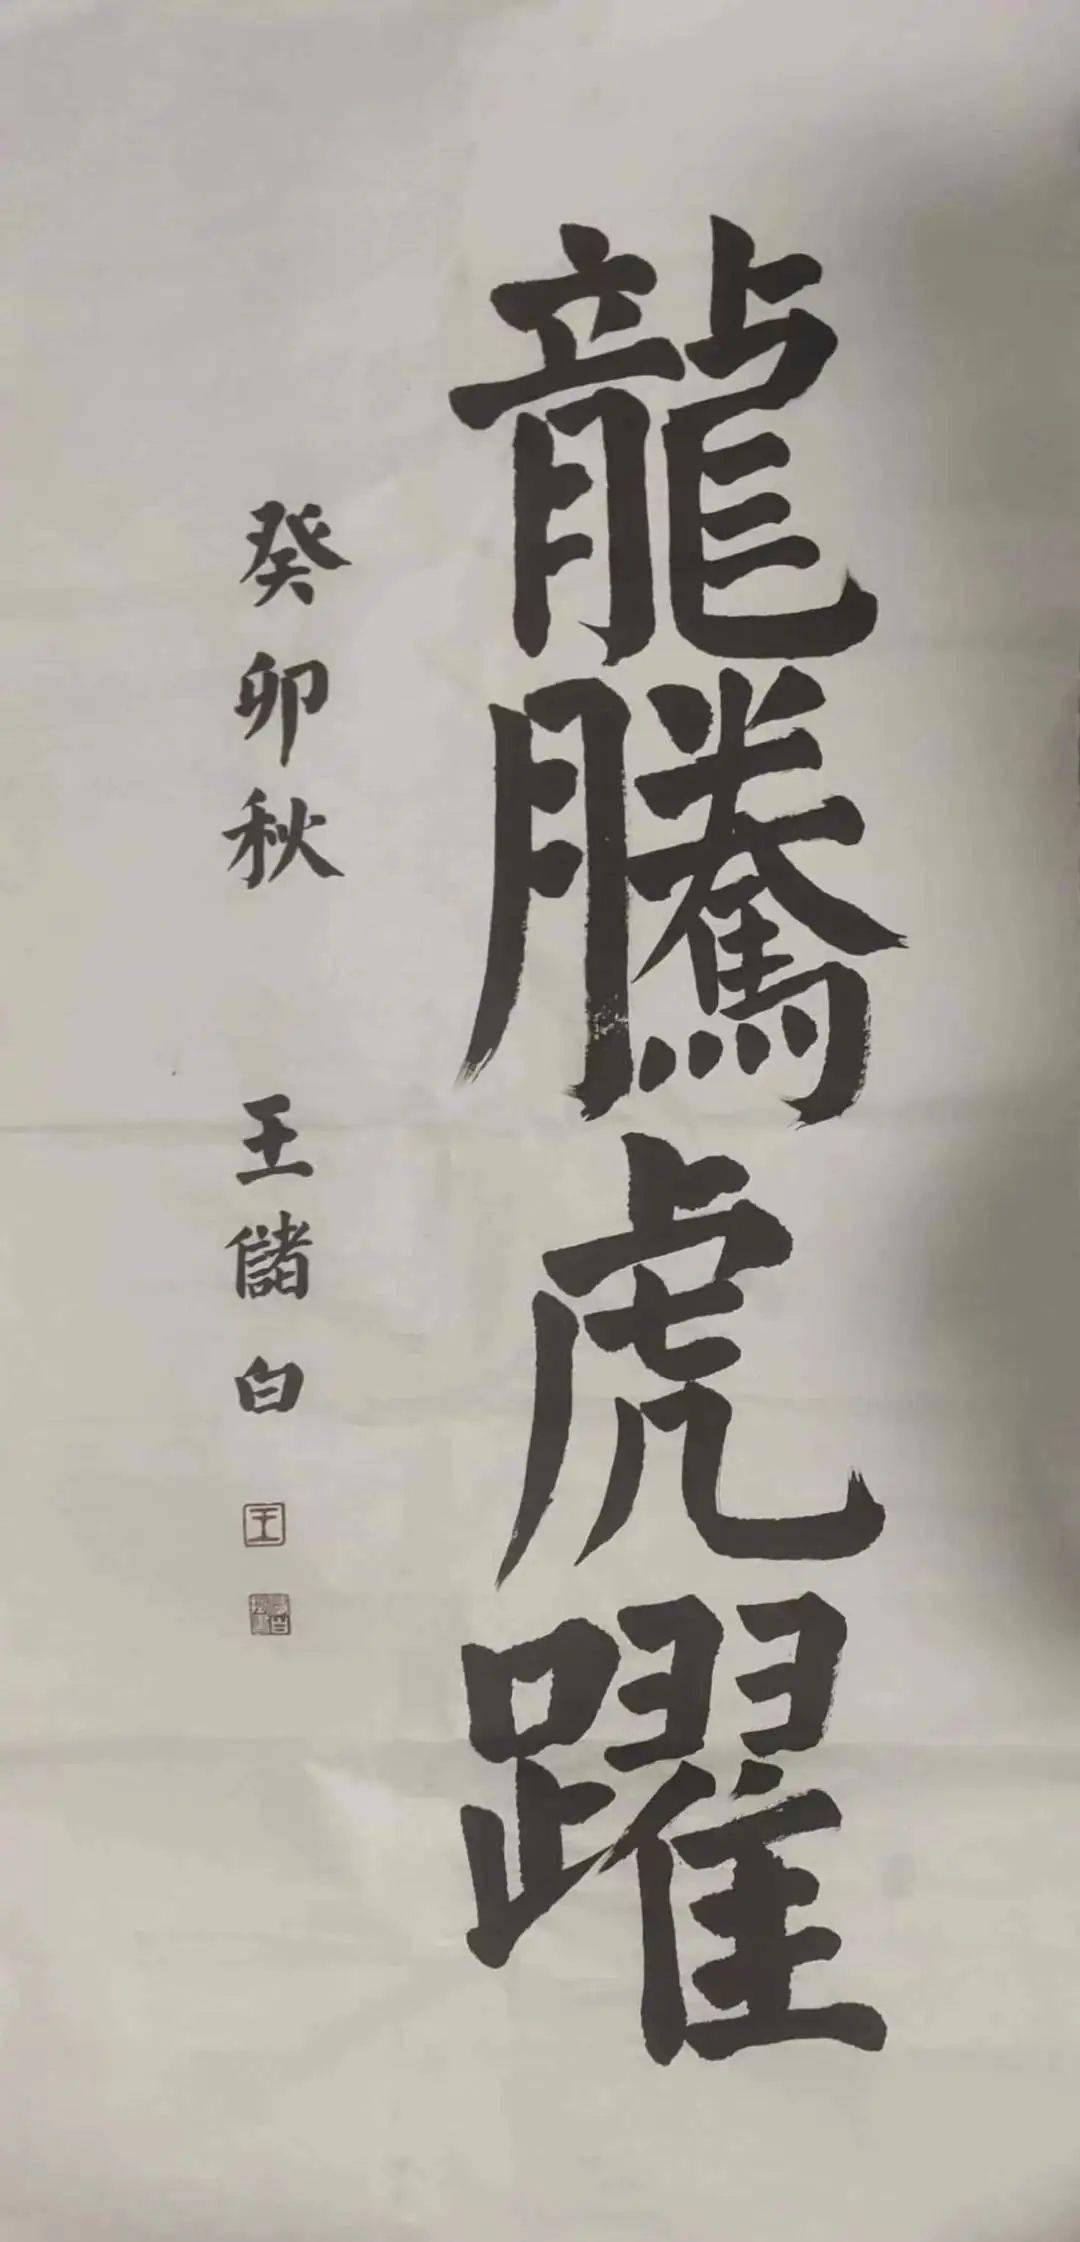 龍騰虎躍
癸卯秋 王儲白
王